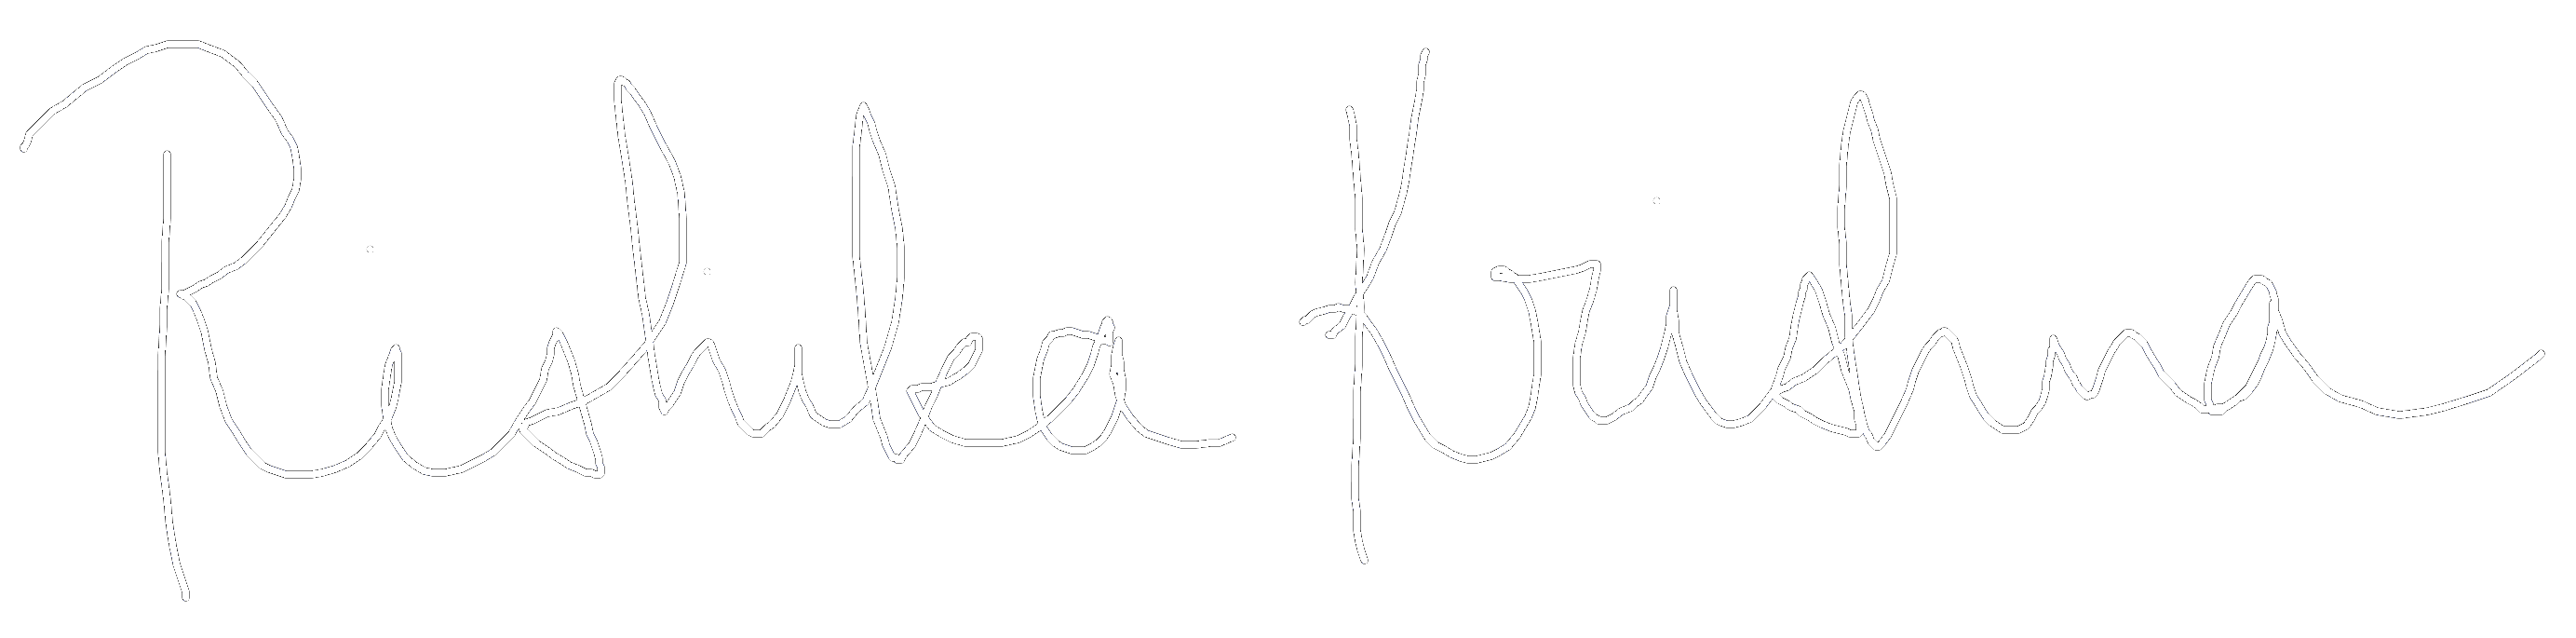 Rishika Krishna